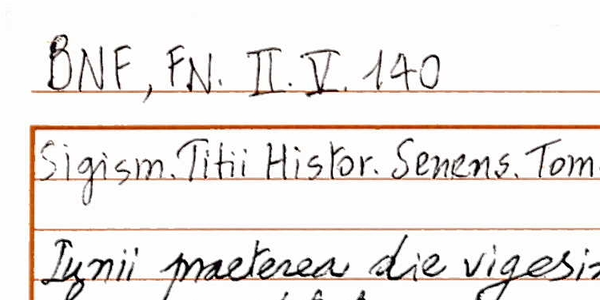 BNF, FN. II. V. 140
Sigism. Titii Histor. Senens. Tom.
Iunii praeterea die vigesi